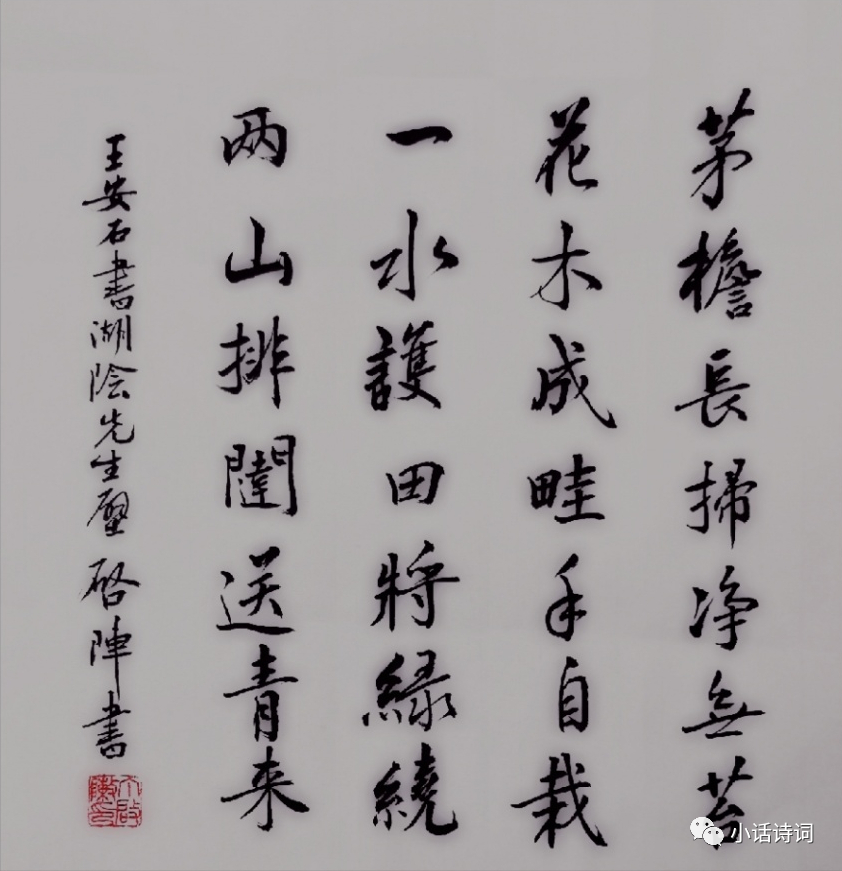 茅檐長掃净無苔
花木成畦手自栽
一水護田將緑繞
两山排闥送青来
王安石書湖陰先生壁 啓陣書
小话诗词